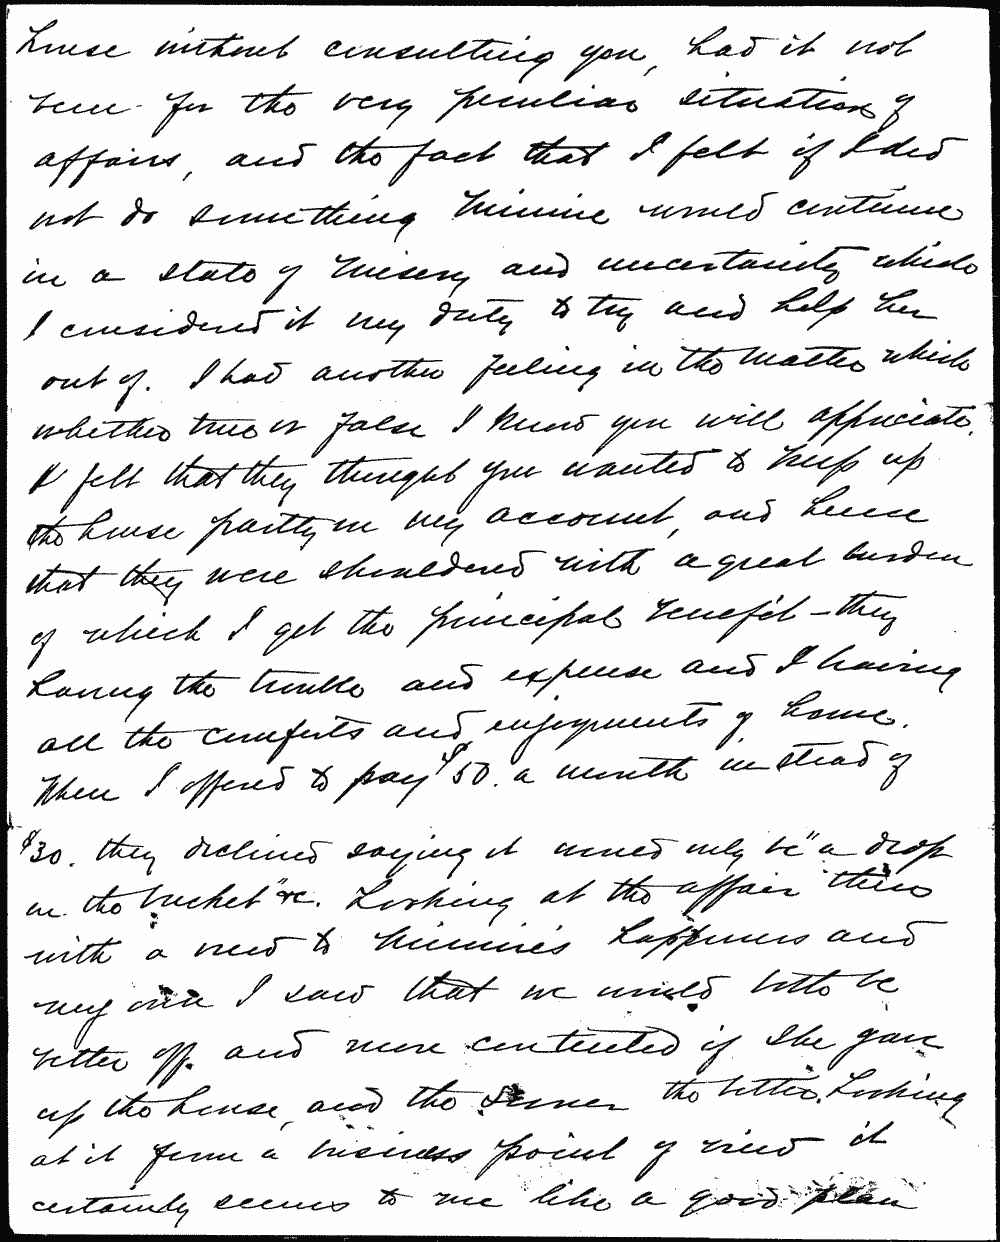 house without consulting you, had it not
been for the very peculiar situation of
affairs, and the fact that I felt if I did
not do something Minnie would continue
in a state of misery and uncertainty which
I considered it my duty to try and help her
out of. I had another feeling in the matter which
whether true or false I know you will appreciate.
I felt that they thought you wanted to keep up
the house partly on my account, and hence
that they were shouldered with a great burden
of which I get the principal benefit – they
having the trouble and expense and I having
all the comforts and enjoyments of home.
When I offered to pay $50. a month instead of
$30. they declined saying it would only be "a drop
in the bucket" &c. Looking at the affair thus
with a view to Minnie's happiness and
my own I saw that we would both be
better off and more contented if she gave
up the house, and the sooner the better. Looking
at it from a business point of view it
certainly seems to me like a good plan